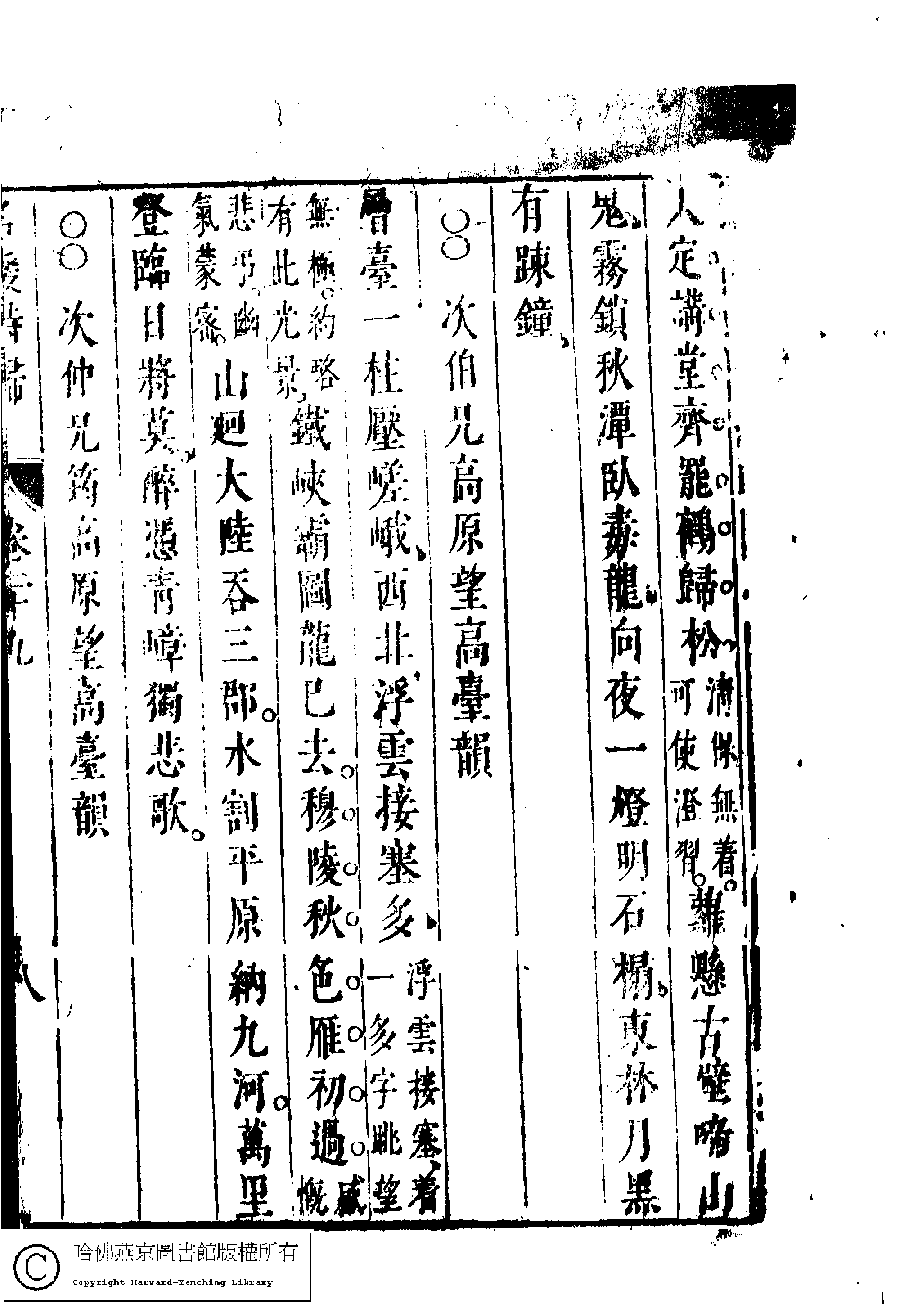 人定講堂齊罷鶴歸松清保無着。可使澄習。蘿懸古壁啼山
鬼霧鎖秋潭臥毒龍向夜一燈明石榻東林月黑
有踈鐘
○○ 次伯兄高原望高臺韻
層臺一柱壓嵯峨西北浮雲接塞多浮雲接塞着一多字眺望
無極。約略有此光景鐵峽霸圖龍已去。穆陵秋色雁初過感慨
悲乎幽氣蒙密。山迴大陸吞三郡。水割平原納九河。萬里
登臨日將莫醉憑靑嶂獨悲歌。
○○ 次仲兄筠高原望高臺韻
名媛詩歸 卷二十九 八
哈佛燕京圖書館版權所有
Copyright Harvard-Yenching Library